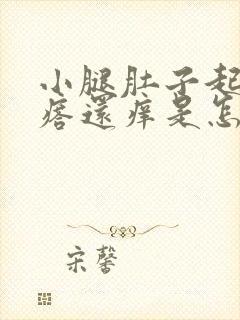 小腿肚子起
痞還痒是怎
宋馨